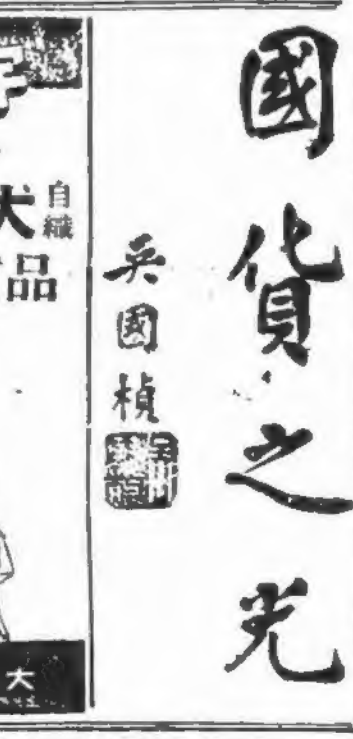 國貨之光
吳國楨
自織
品
大